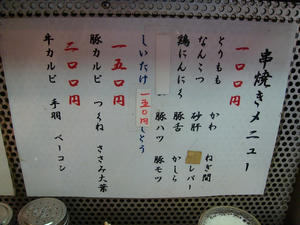 串焼きメニュー
一〇〇円
とりもも かわ ねぎ間
なんこつ 砂肝 レバー
鶏にんにく 豚舌 かしら
豚ハツ 豚モツ
しいたけ 一五〇円 しとう
一五〇円
豚カルビ つくね ささみ大葉
二〇〇円
牛カルビ 手羽 ベーコン